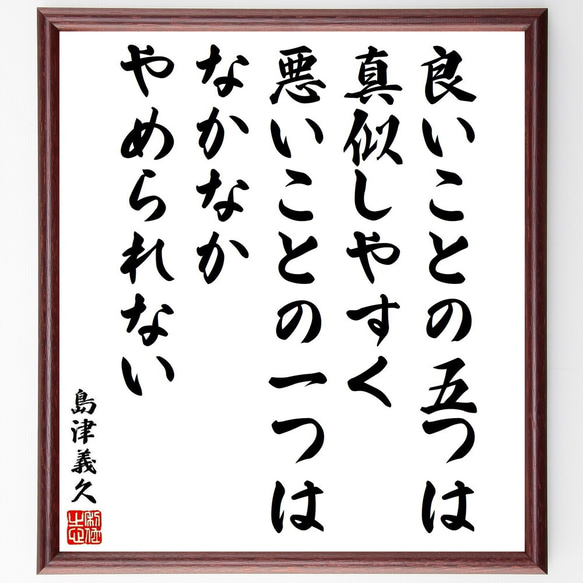 良いことの五つは
真似しやすく
悪いことの一つは
なかなか
やめられない
島津義久